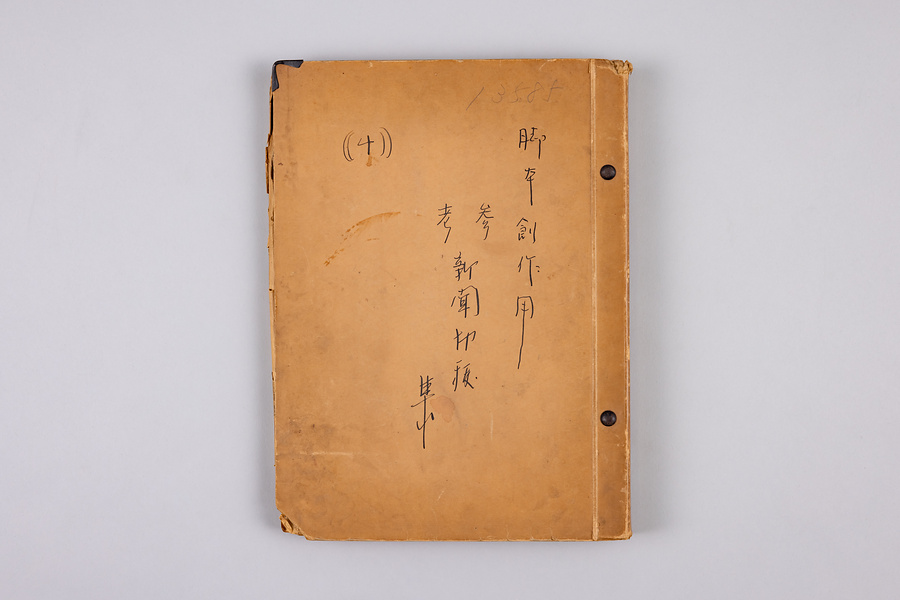 13585
脚本創作用
参考
新聞切抜
集
((4))